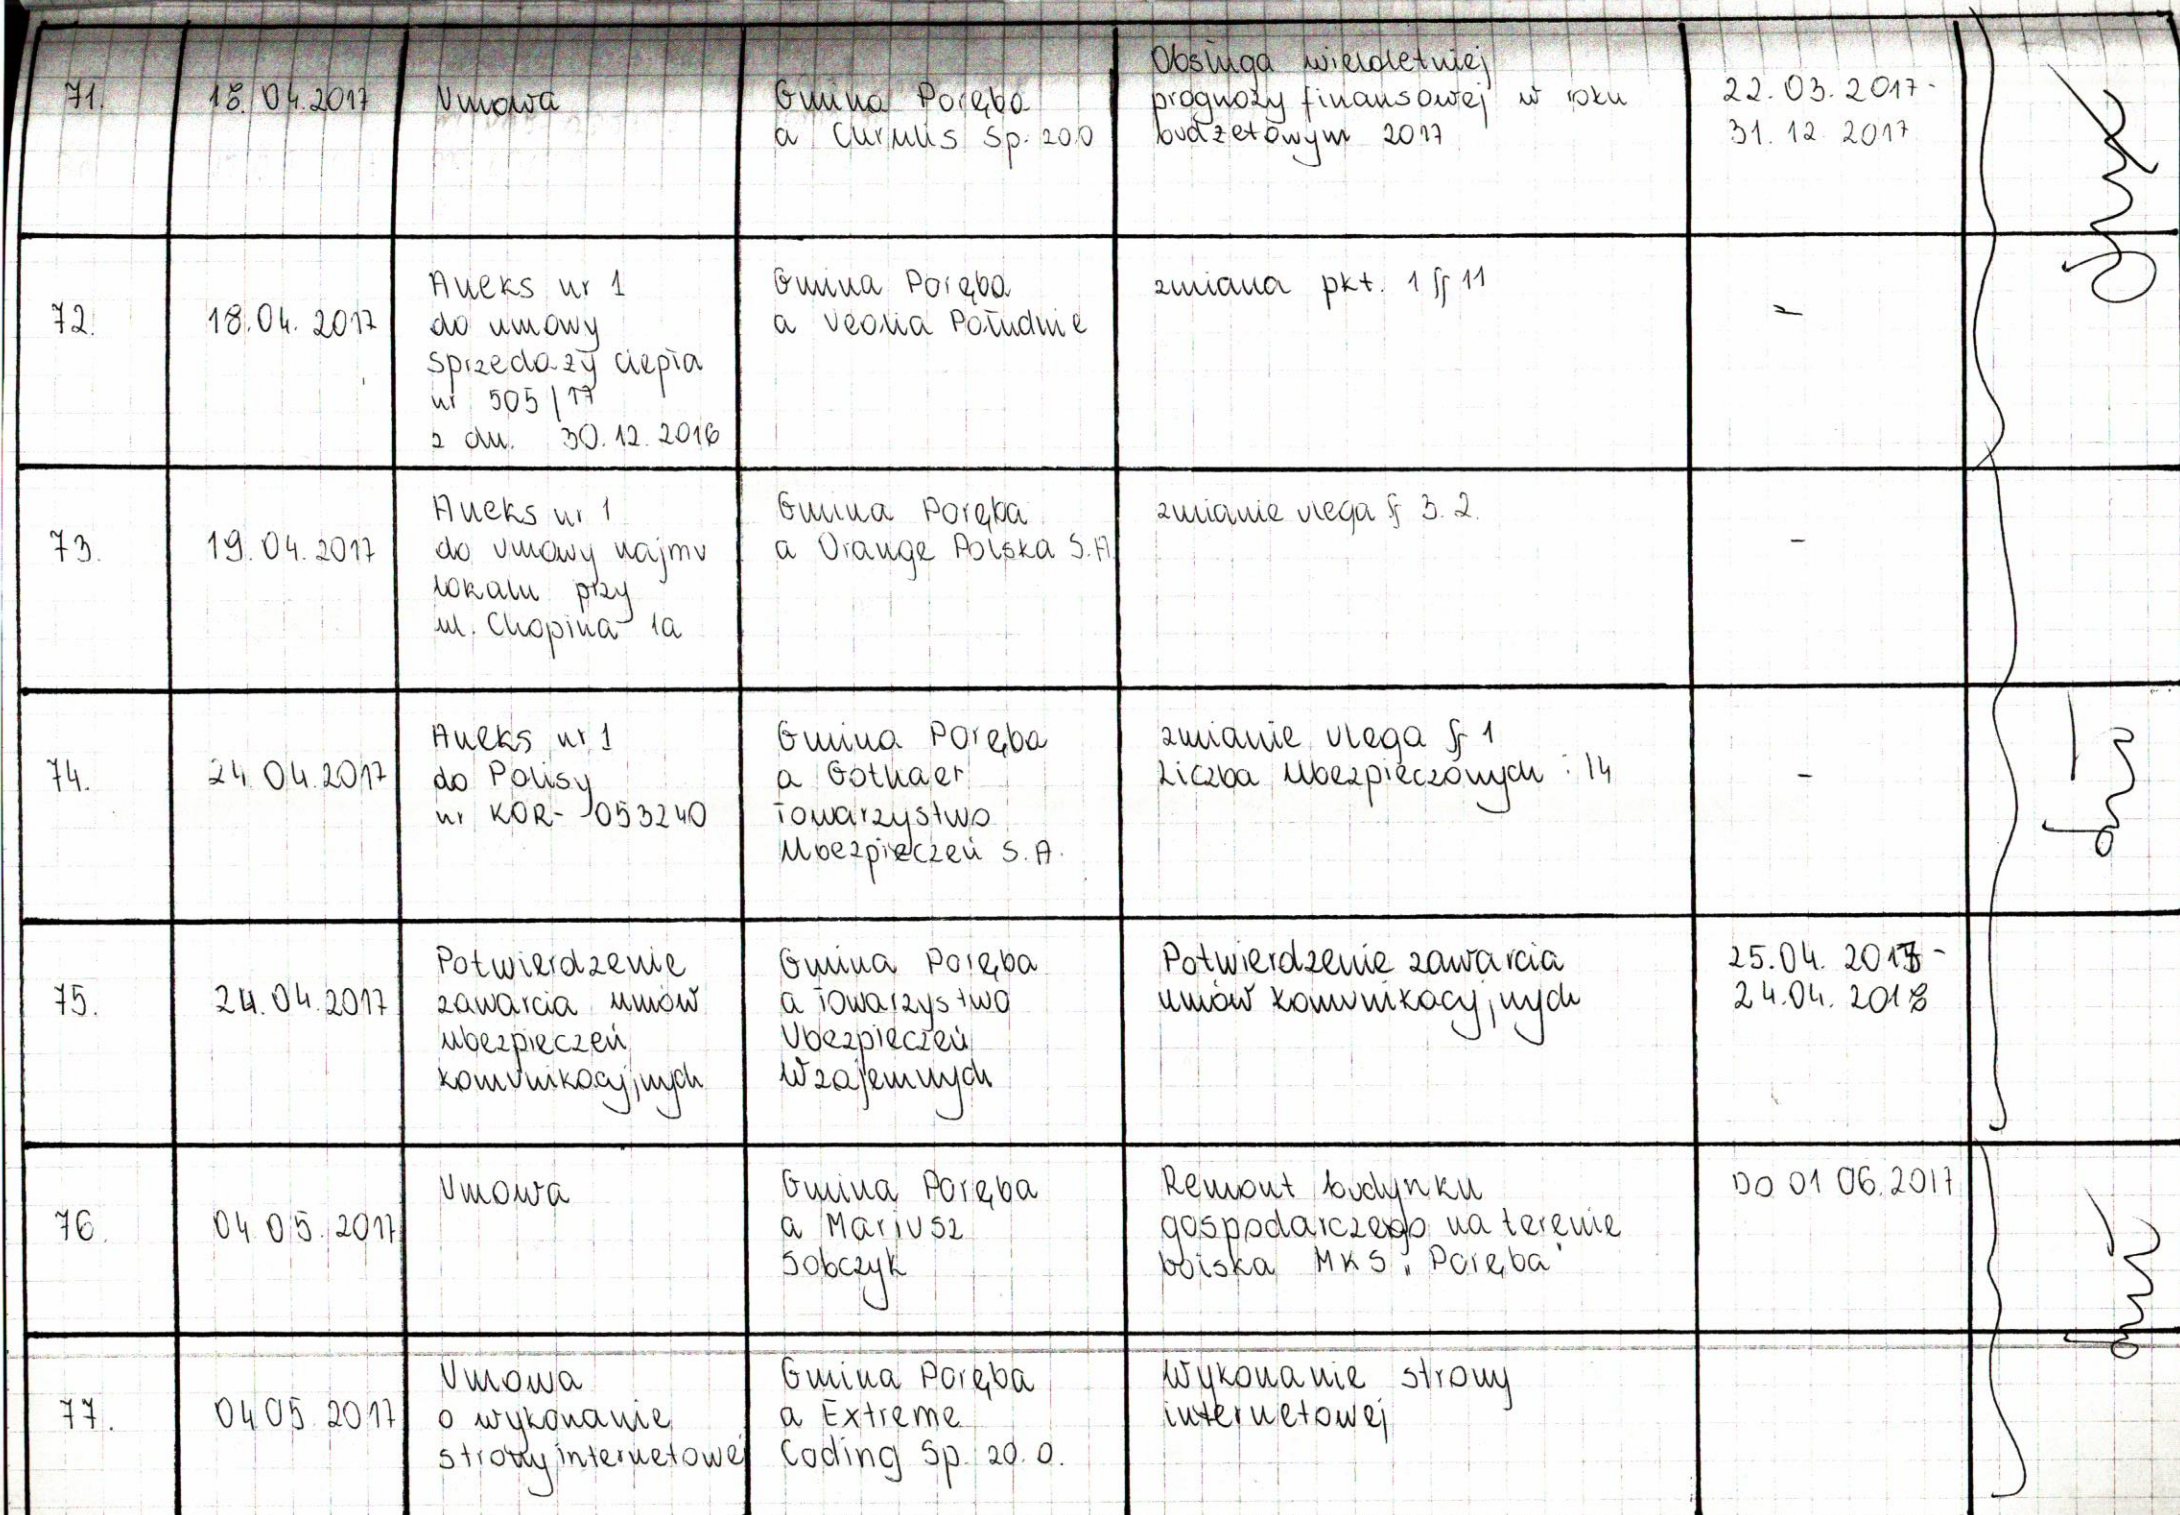 71.
18.04.2017
Umowa
Gmina Poręba
a Curulis Sp. zo.o
Obsługa wieloletniej
prognozy finansowej w roku
budżetowym 2017
22.03.2017-
31.12.2017
72.
18.04.2017
Aneks nr 1
do umowy
sprzedaży ciepła
nr 505/17
z dn. 30.12.2016
Gmina Poręba
a Veolia Południe
zmiana pkt. 1 § 11
-
73.
19.04.2017
Aneks nr 1
do umowy najmu
lokalu przy
ul. Chopina 1a
Gmina Poręba
a Orange Polska S.A
zmianie ulega § 3.2.
-
74.
24.04.2017
Aneks nr 1
do Polisy
nr KOR-053240
Gmina Poręba
a Gothaer
Towarzystwo
Ubezpieczeń S.A.
zmianie ulega § 1
Liczba Ubezpieczonych : 14
-
75.
24.04.2017
Potwierdzenie
zawarcia umów
ubezpieczeń
komunikacyjnych
Gmina Poręba
a Towarzystwo
Ubezpieczeń
Wzajemnych
Potwierdzenie zawarcia
umów komunikacyjnych
25.04.2017-
24.04.2018
76.
04.05.2017
Umowa
Gmina Poręba
a Mariusz
Sobczyk
Remont budynku
gospodarczego na terenie
boiska MKS "Poręba"
DO 01.06.2017
77.
04.05.2017
Umowa
o wykonanie
strony internetowej
Gmina Poręba
a Extreme
Coding Sp. zo.o.
Wykonanie strony
internetowej